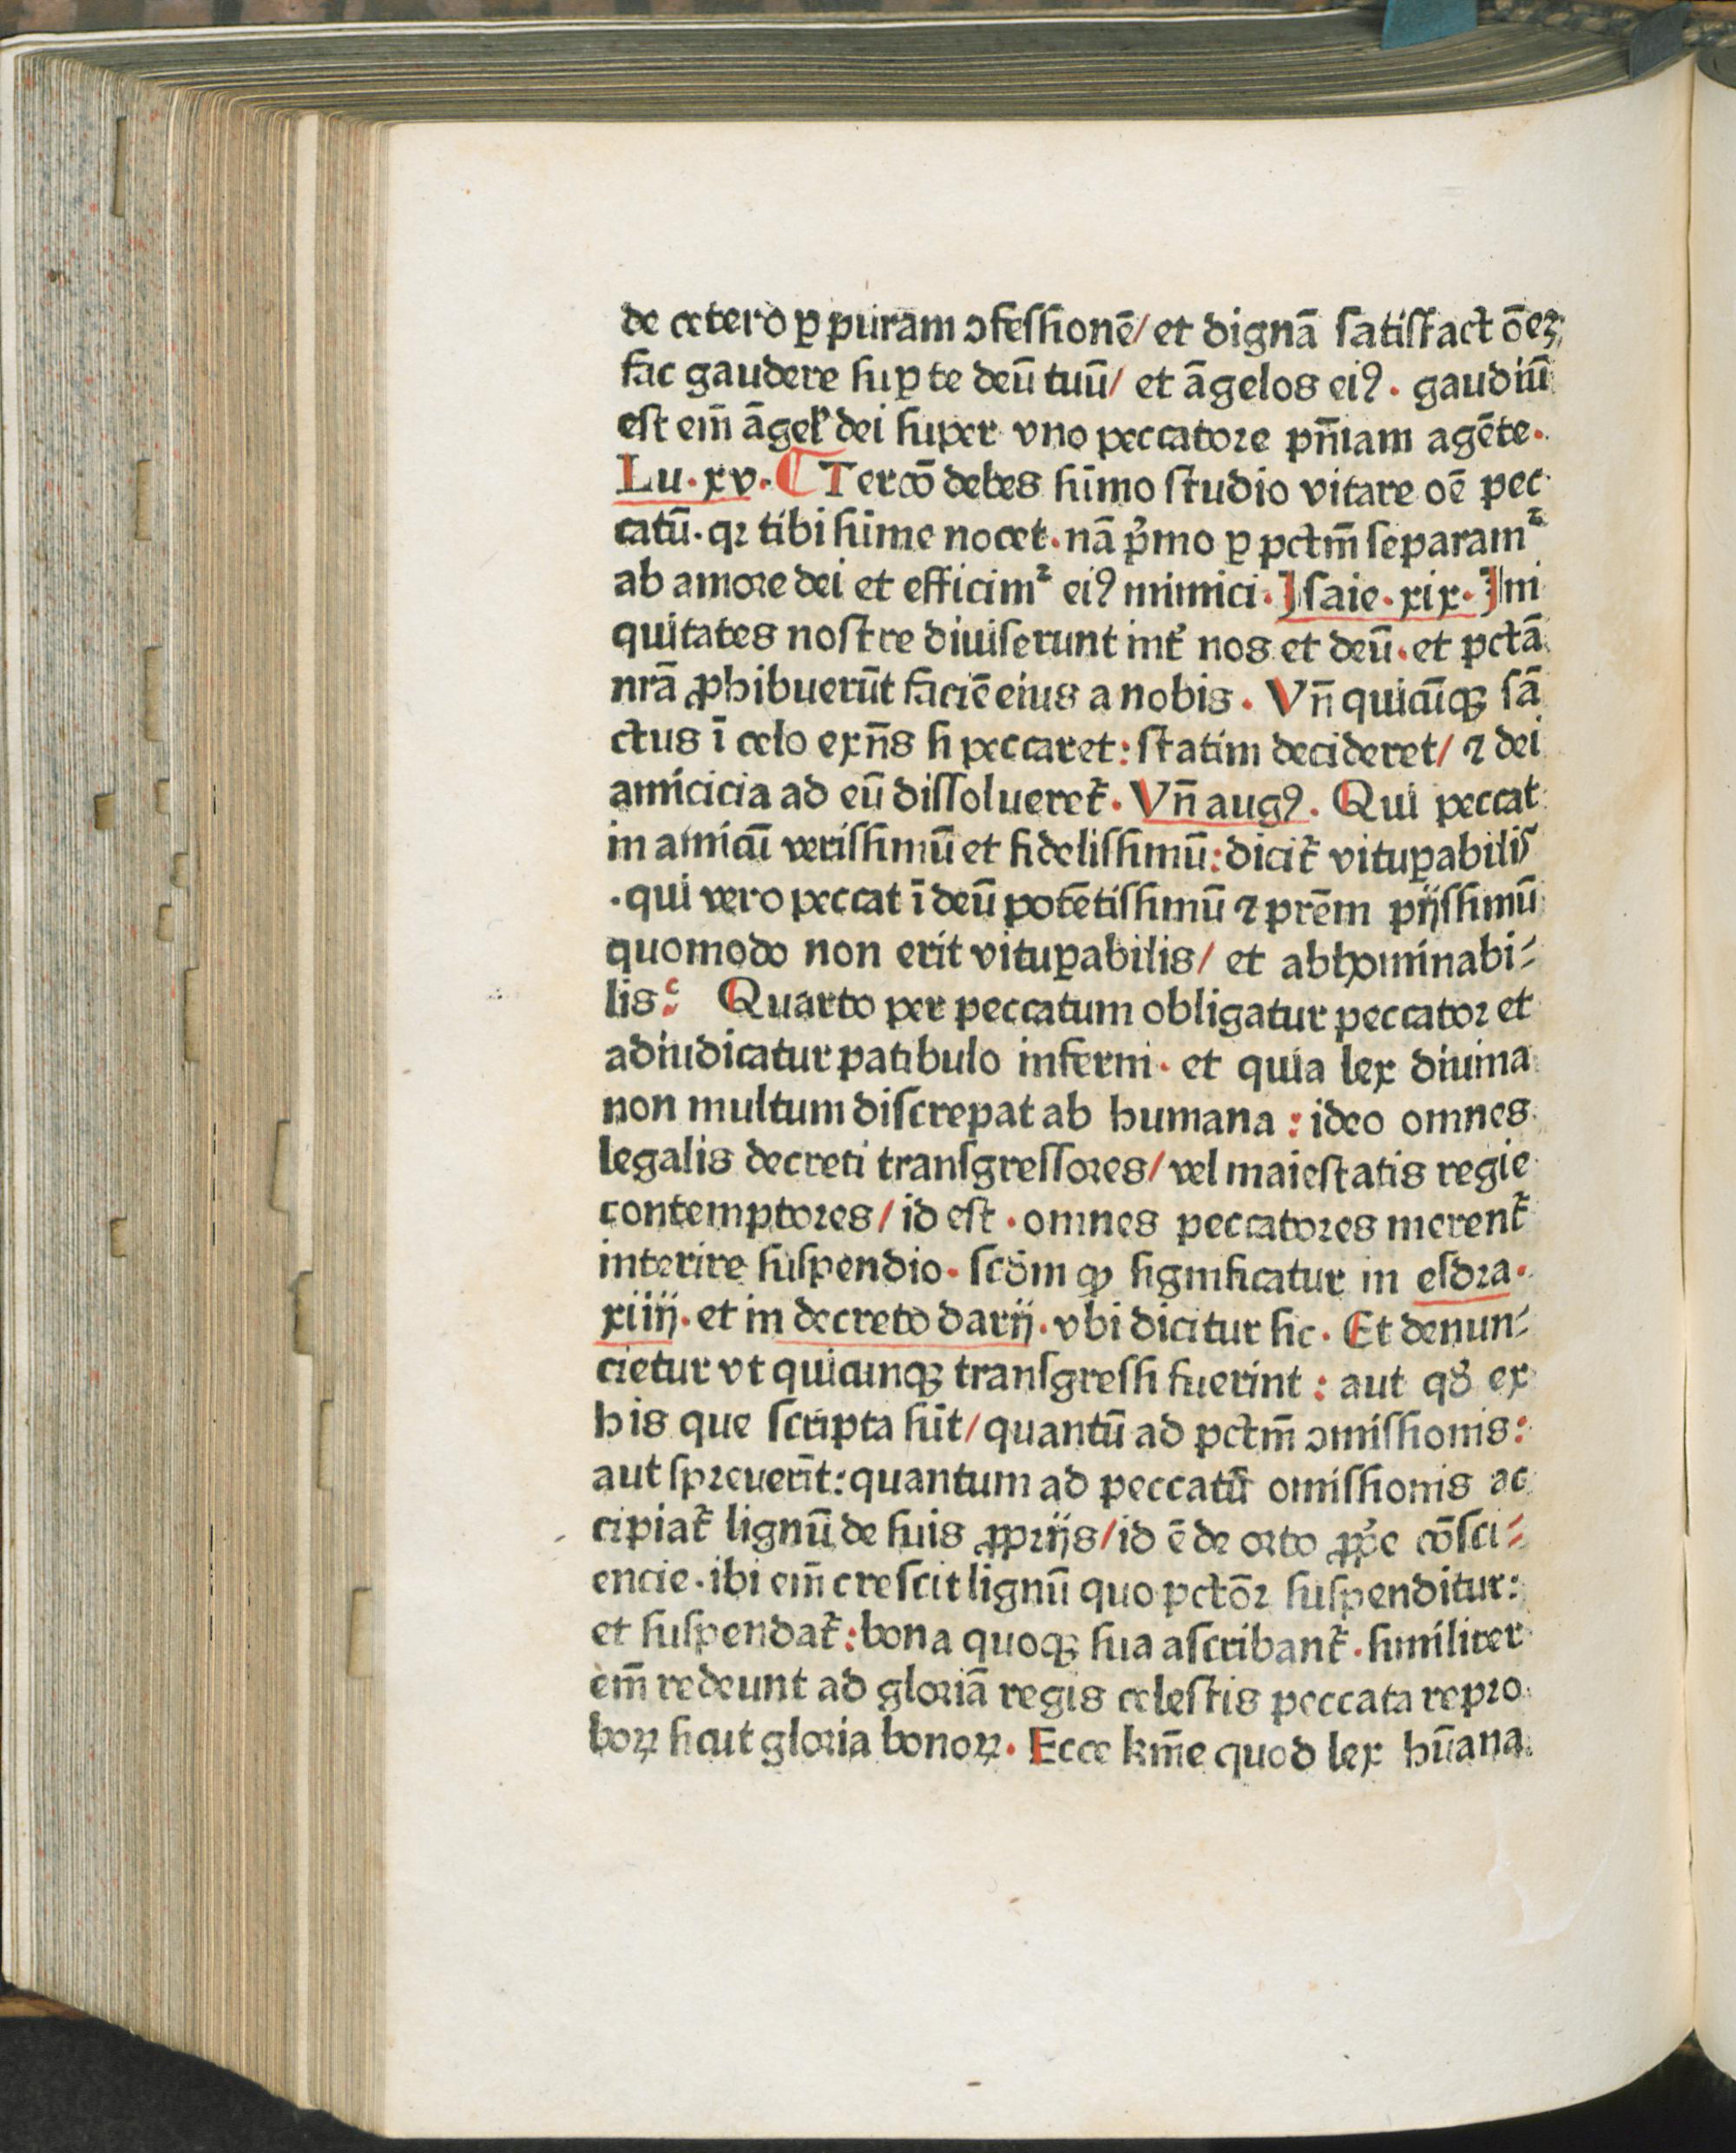 de cetero ꝑ puram ↄfeſſionē/ et dignā ſatiſfact ōeꝫ
fac gaudere ſuꝑ te deū tuū/ et āgelos eiꝰ. gaudiū
eſt em̄ āgel' dei ſuper vno peccatoꝛe pn̄iam agēte.
Lu. xv. ¶ Tercō debes ſūmo ſtudio vitare oē pec
catū. qꝛ tibi ſūme nocet. nā p̓mo ꝑ pctm̄ ſeparamᷣ
ab amoꝛe dei et efficimᷣ eiꝰ inimici. Iſaie. xix. Ini
quitates noſtre diuiſerunt int̓ nos et deū. et pctā
nrā ꝓhibuerūt faciē eius a nobis. Vn̄ quicūqꝫ ſā
ctus ī celo exn̄s ſi peccaret: ſtatim decideret/ ⁊ dei
amicicia ad eū diſſolueret̉. Vn̄ augꝰ. Qui peccat
in amicū veriſſimū et fideliſſimū: dicit̉ vituꝑabilis
.qui vero peccat ī deū potētiſſimū ⁊ prēm pijſſimū
quomodo non erit vituꝑabilis/ et abhominabi⸗
lis: Quarto per peccatum obligatur peccatoꝛ et
adiudicatur patibulo inferni. et quia lex diuina
non multum diſcrepat ab humana: ideo omnes
legalis decreti tranſgreſſoꝛes/ vel maieſtatis regie
contemptoꝛes/ id eſt. omnes peccatoꝛes merent̉
interire ſuſpendio. ſcd̄m ꝙ ſignificatur in eſdꝛa.
xiiij. et in decreto darij. vbi dicitur ſic. Et denun⸗
cietur vt quicunqꝫ tranſgreſſi fuerint: aut qd̓ ex
his que ſcripta ſūt/ quantū ad pctm̄ ↄmiſſionis:
aut ſpꝛeuerīt: quantum ad peccatū omiſſionis ac
cipiat̉ lignū de ſuis ꝓpꝛijs/ id ē de oꝛto ꝓp̓e cōſci⸗
encie. ibi em̄ creſcit lignū quo pctōꝛ ſuſpenditur:
et ſuſpendat̉: bona quoqꝫ ſua aſcribant̉. ſimiliter
em̄ redeunt ad gloꝛiā regis celeſtis peccata repꝛo
boꝝ ſicut gloꝛia bonoꝝ. Ecce km̄e quod lex hūana